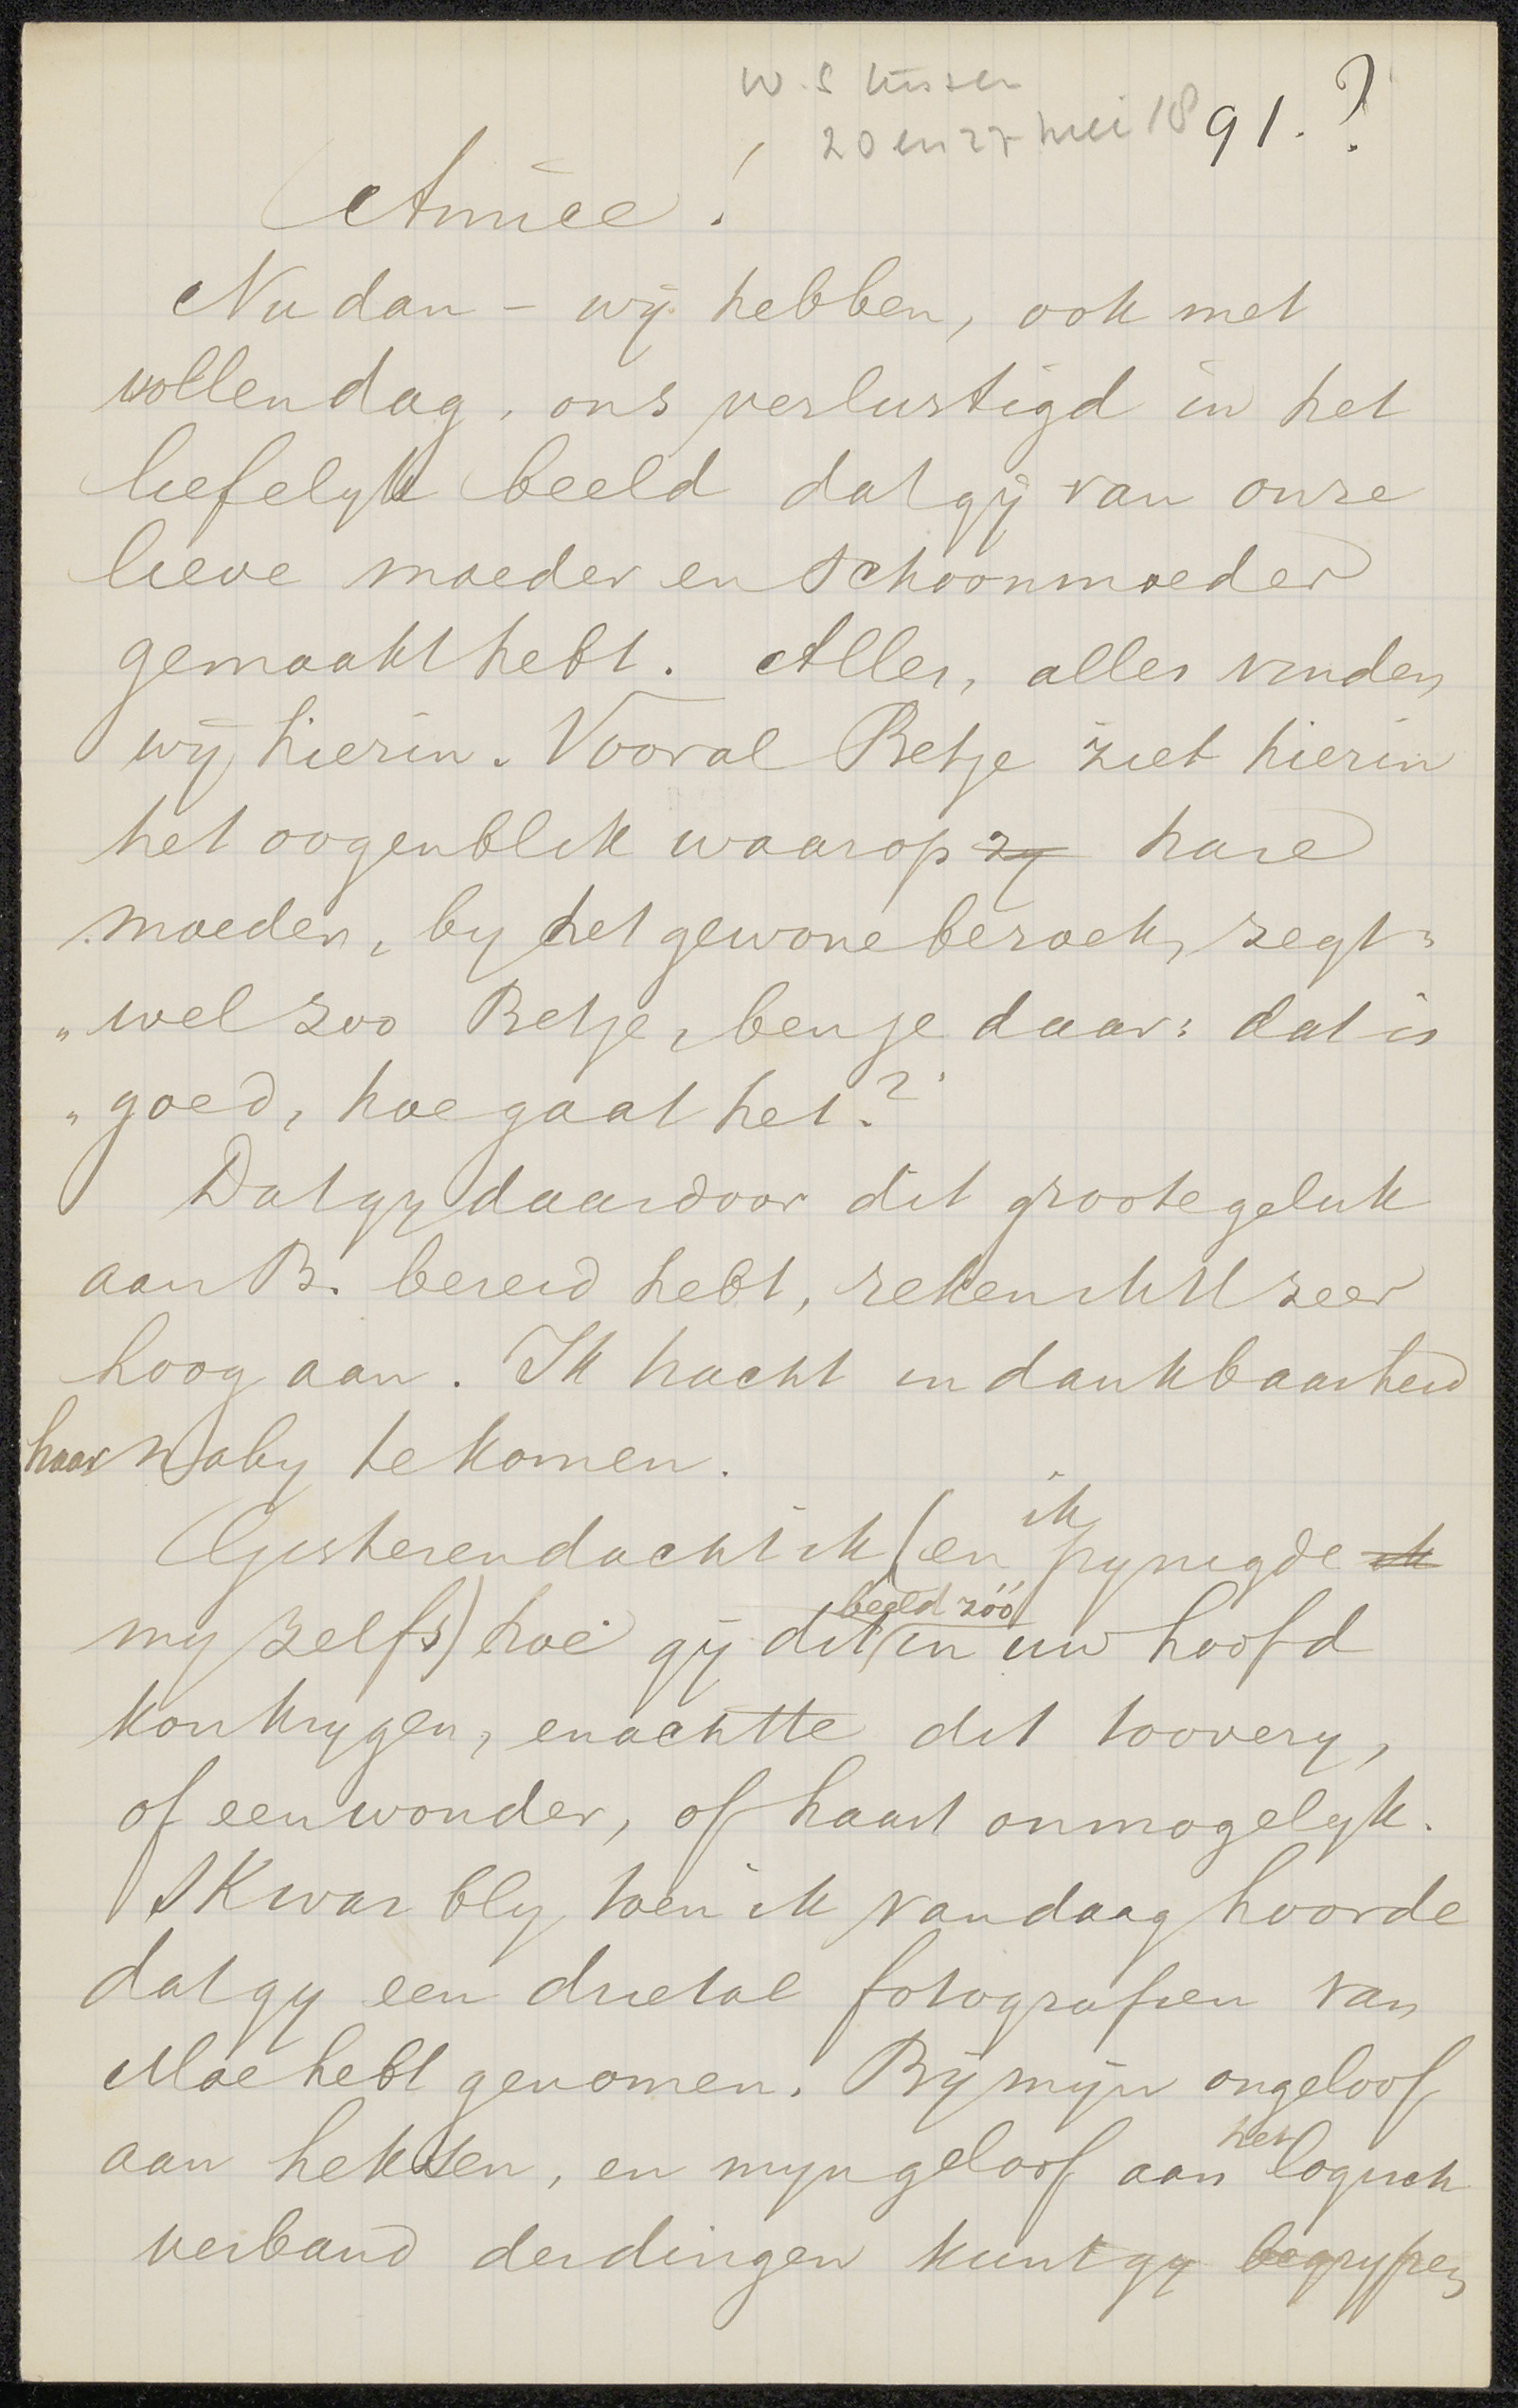 20 en 27 mei 1891.?
Amice!
Nu dan – wij hebben, ook met
vollen dag, ons verlustigd in het
liefelyk beeld dat gij van onze
lieve moeder en schoonmoeder
gemaakt hebt. Alles, alles vinden
wij hierin. Vooral Betje ziet hierin
het oogenblik waarop zy hare
moeder, by het gewone bezoek, zegt:
„wel zoo Betje, ben je daar: dat is
„goed, hoe gaat het?"
Dat gy daardoor dit groote geluk
aan B. bereid hebt, reken ik U zeer
hoog aan. Ik tracht in dankbaarheid
haar naby te komen.
Gisteren dacht ik (en ik pynigde ik
my zelfs) hoe gij dit beeld zóó in uw hoofd
kon krygen, en achtte dit toovery,
of een wonder, of haast onmogelyk.
Ik was bly toen ik vandaag hoorde
dat gy een drietal fotografien van
Moe hebt genomen. Bij mijn ongeloof
aan heksen, en myn geloof aan het logisch
verband der dingen kunt gy begrypen